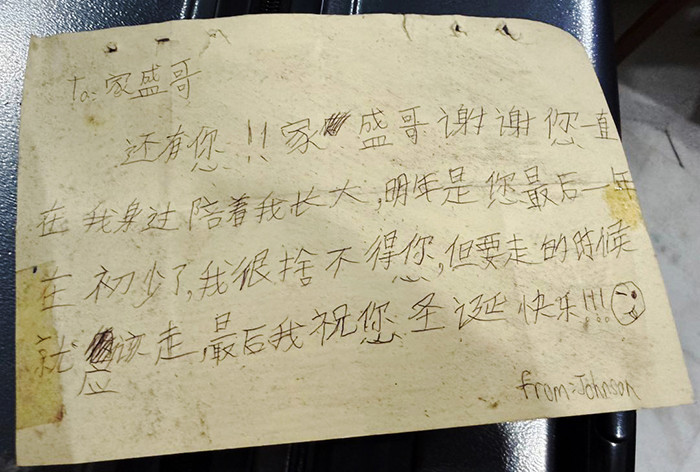 To: 家盛哥
还有您!! 家盛哥谢谢您一直
在我身边陪着我长大,明年是您最后一年
在初少了,我很捨不得您,但要走的时候
就应该走最后我祝您圣诞快乐!!!
from: Johnson